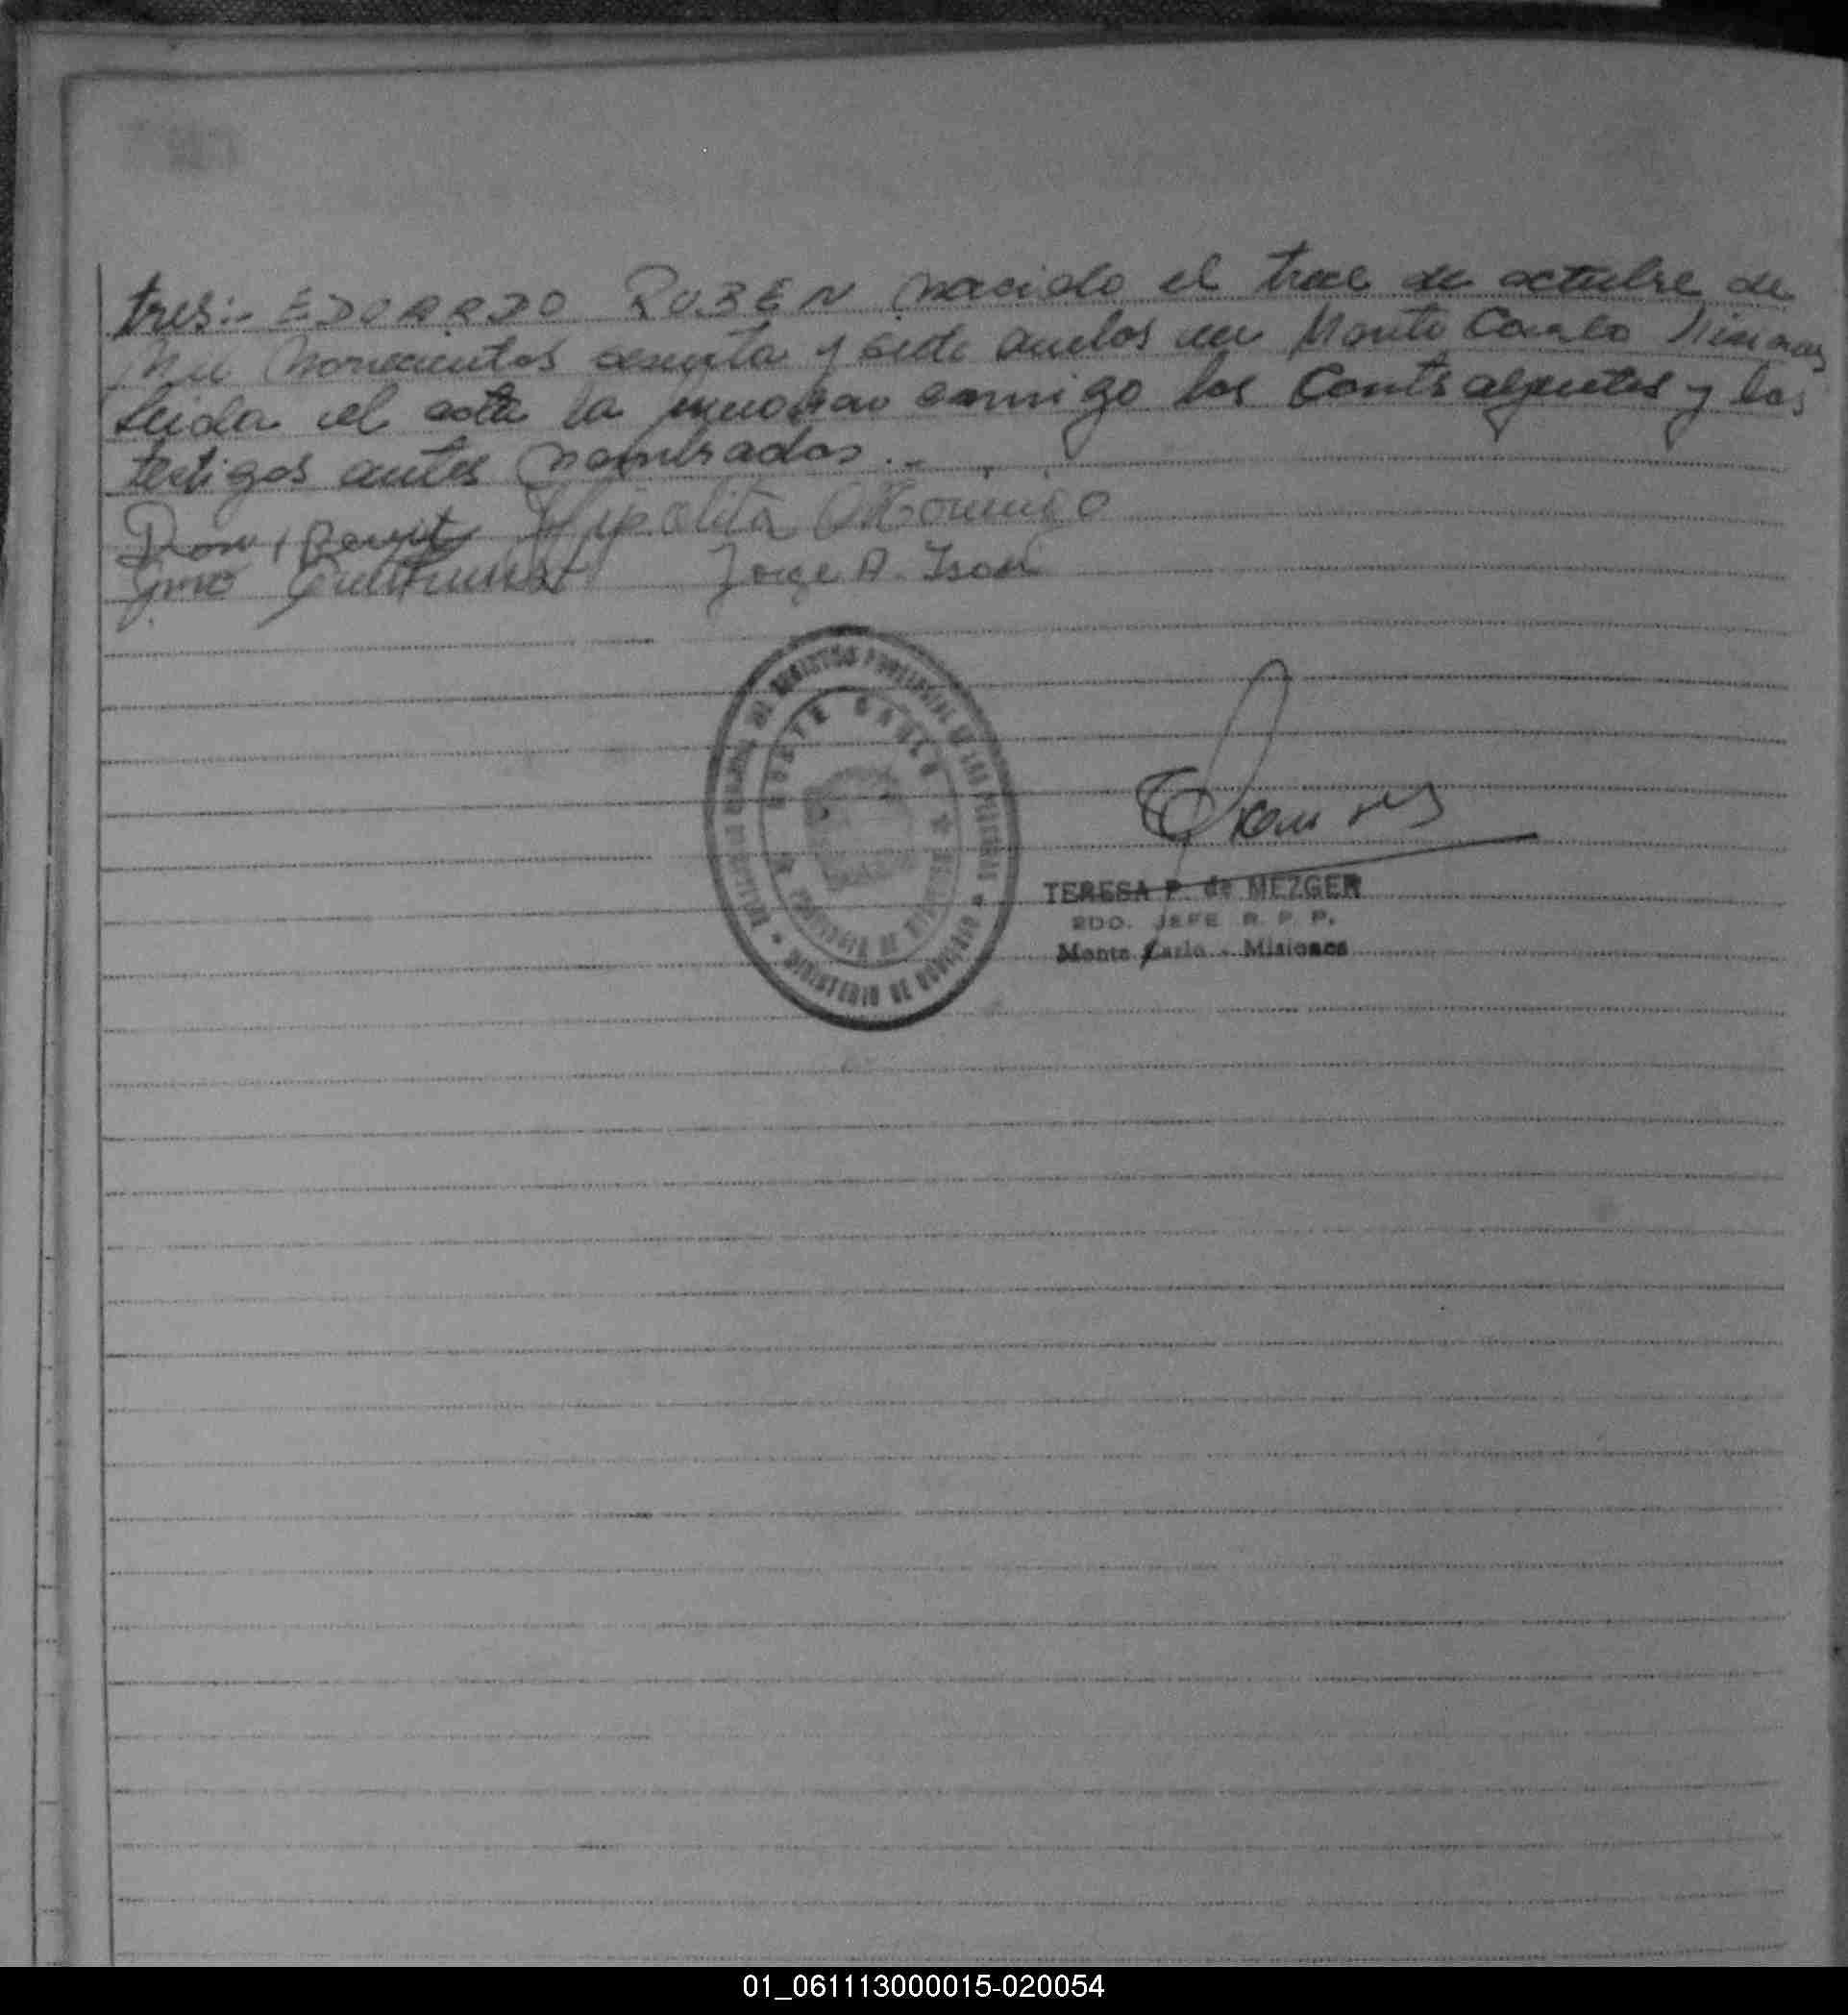 tres:- EDUARDO RUBEN nacido el trece de octubre de
Mil Novecientos sesenta y siete ambos en Monte Carlo Misiones
Leida el acta la firman conmigo los Contrayentes y los
testigos antes nombrados.-
Hipolita
Jorge A.
REGISTRO PROVINCIAL DE LAS PERSONAS
MONTE CARLO
PROVINCIA DE MISIONES
MINISTERIO DE GOBIERNO
TERESA P. de MEZGER
2DO. JEFE R. P. P.
Monte Carlo - Misiones
01_061113000015-020054